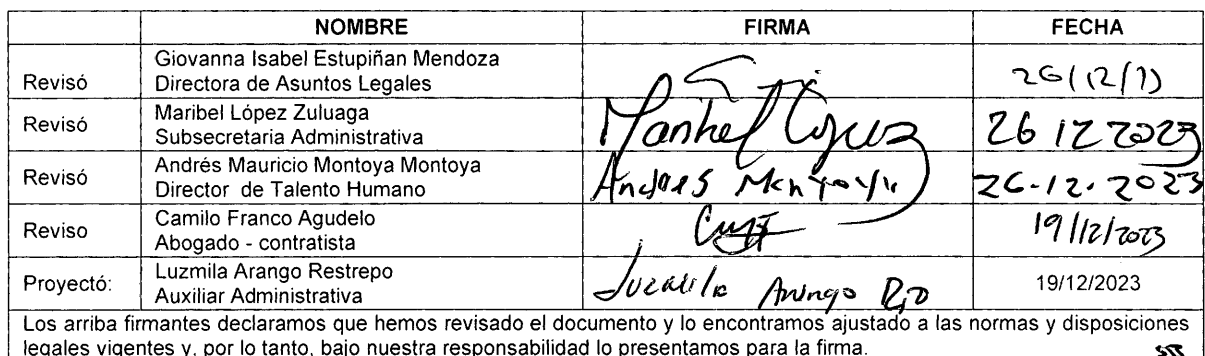 NOMBRE FIRMA FECHA
Giovanna Isabel Estupiñan Mendoza
Revisó Directora de Asuntos Legales
Maribel López Zuluaga
Revisó Subsecretaria Administrativa Maribel López 26 12 2023
Andrés Mauricio Montoya Montoya
Revisó Director de Talento Humano Andres Montoya 26.12.2023
Camilo Franco Agudelo
Reviso Abogado - contratista 19/12/2023
Luzmila Arango Restrepo
Proyectó: Auxiliar Administrativa Luzmila Arango 19/12/2023
Los arriba firmantes declaramos que hemos revisado el documento y lo encontramos ajustado a las normas y disposiciones
legales vigentes y, por lo tanto, bajo nuestra responsabilidad lo presentamos para la firma.